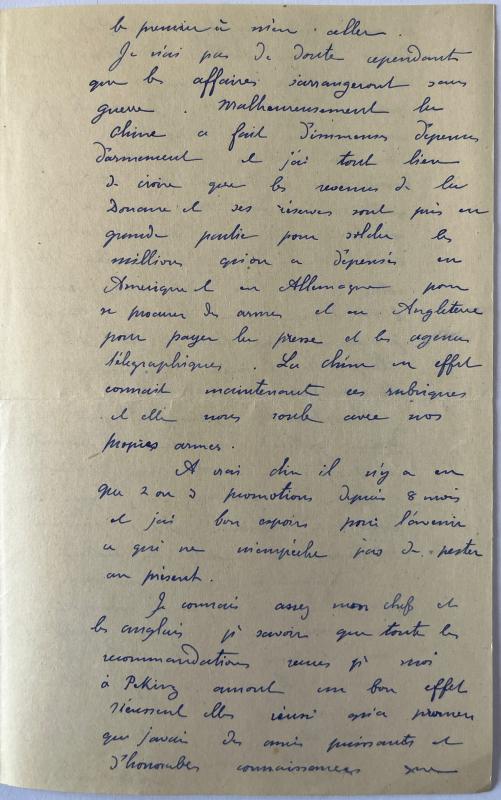 le premier à m'en aller.
Je n'ai pas de doute cependant
que les affaires s'arrangeront sans
guerre. Malheureusement la
Chine a fait d'immenses dépenses
d'armement et j'ai tout lieu
de croire que les revenus de la
Douane et ses réserves sont pris en
grande partie pour solder les
millions qu'on a dépensés en
Amérique et en Allemagne pour
se procurer des armes et en Angleterre
pour payer la presse et les agences
télégraphiques. La Chine en effet
connait maintenant ces rubriques
et elle nous roule avec nos
propres armes.
A vrai dire il n'y a eu
que 2 ou 3 promotions depuis 8 mois
et j'ai bon espoir pour l'avenir
ce qui ne m'empêche pas de pester
au présent.
Je connais assez mon chef et
les anglais pr savoir que toutes les
recommandations reçues pr moi
à Peking auront un bon effet
réussent elles rien qu'à prouver
que j'avais des amis puissants et
d'honorables connaissances